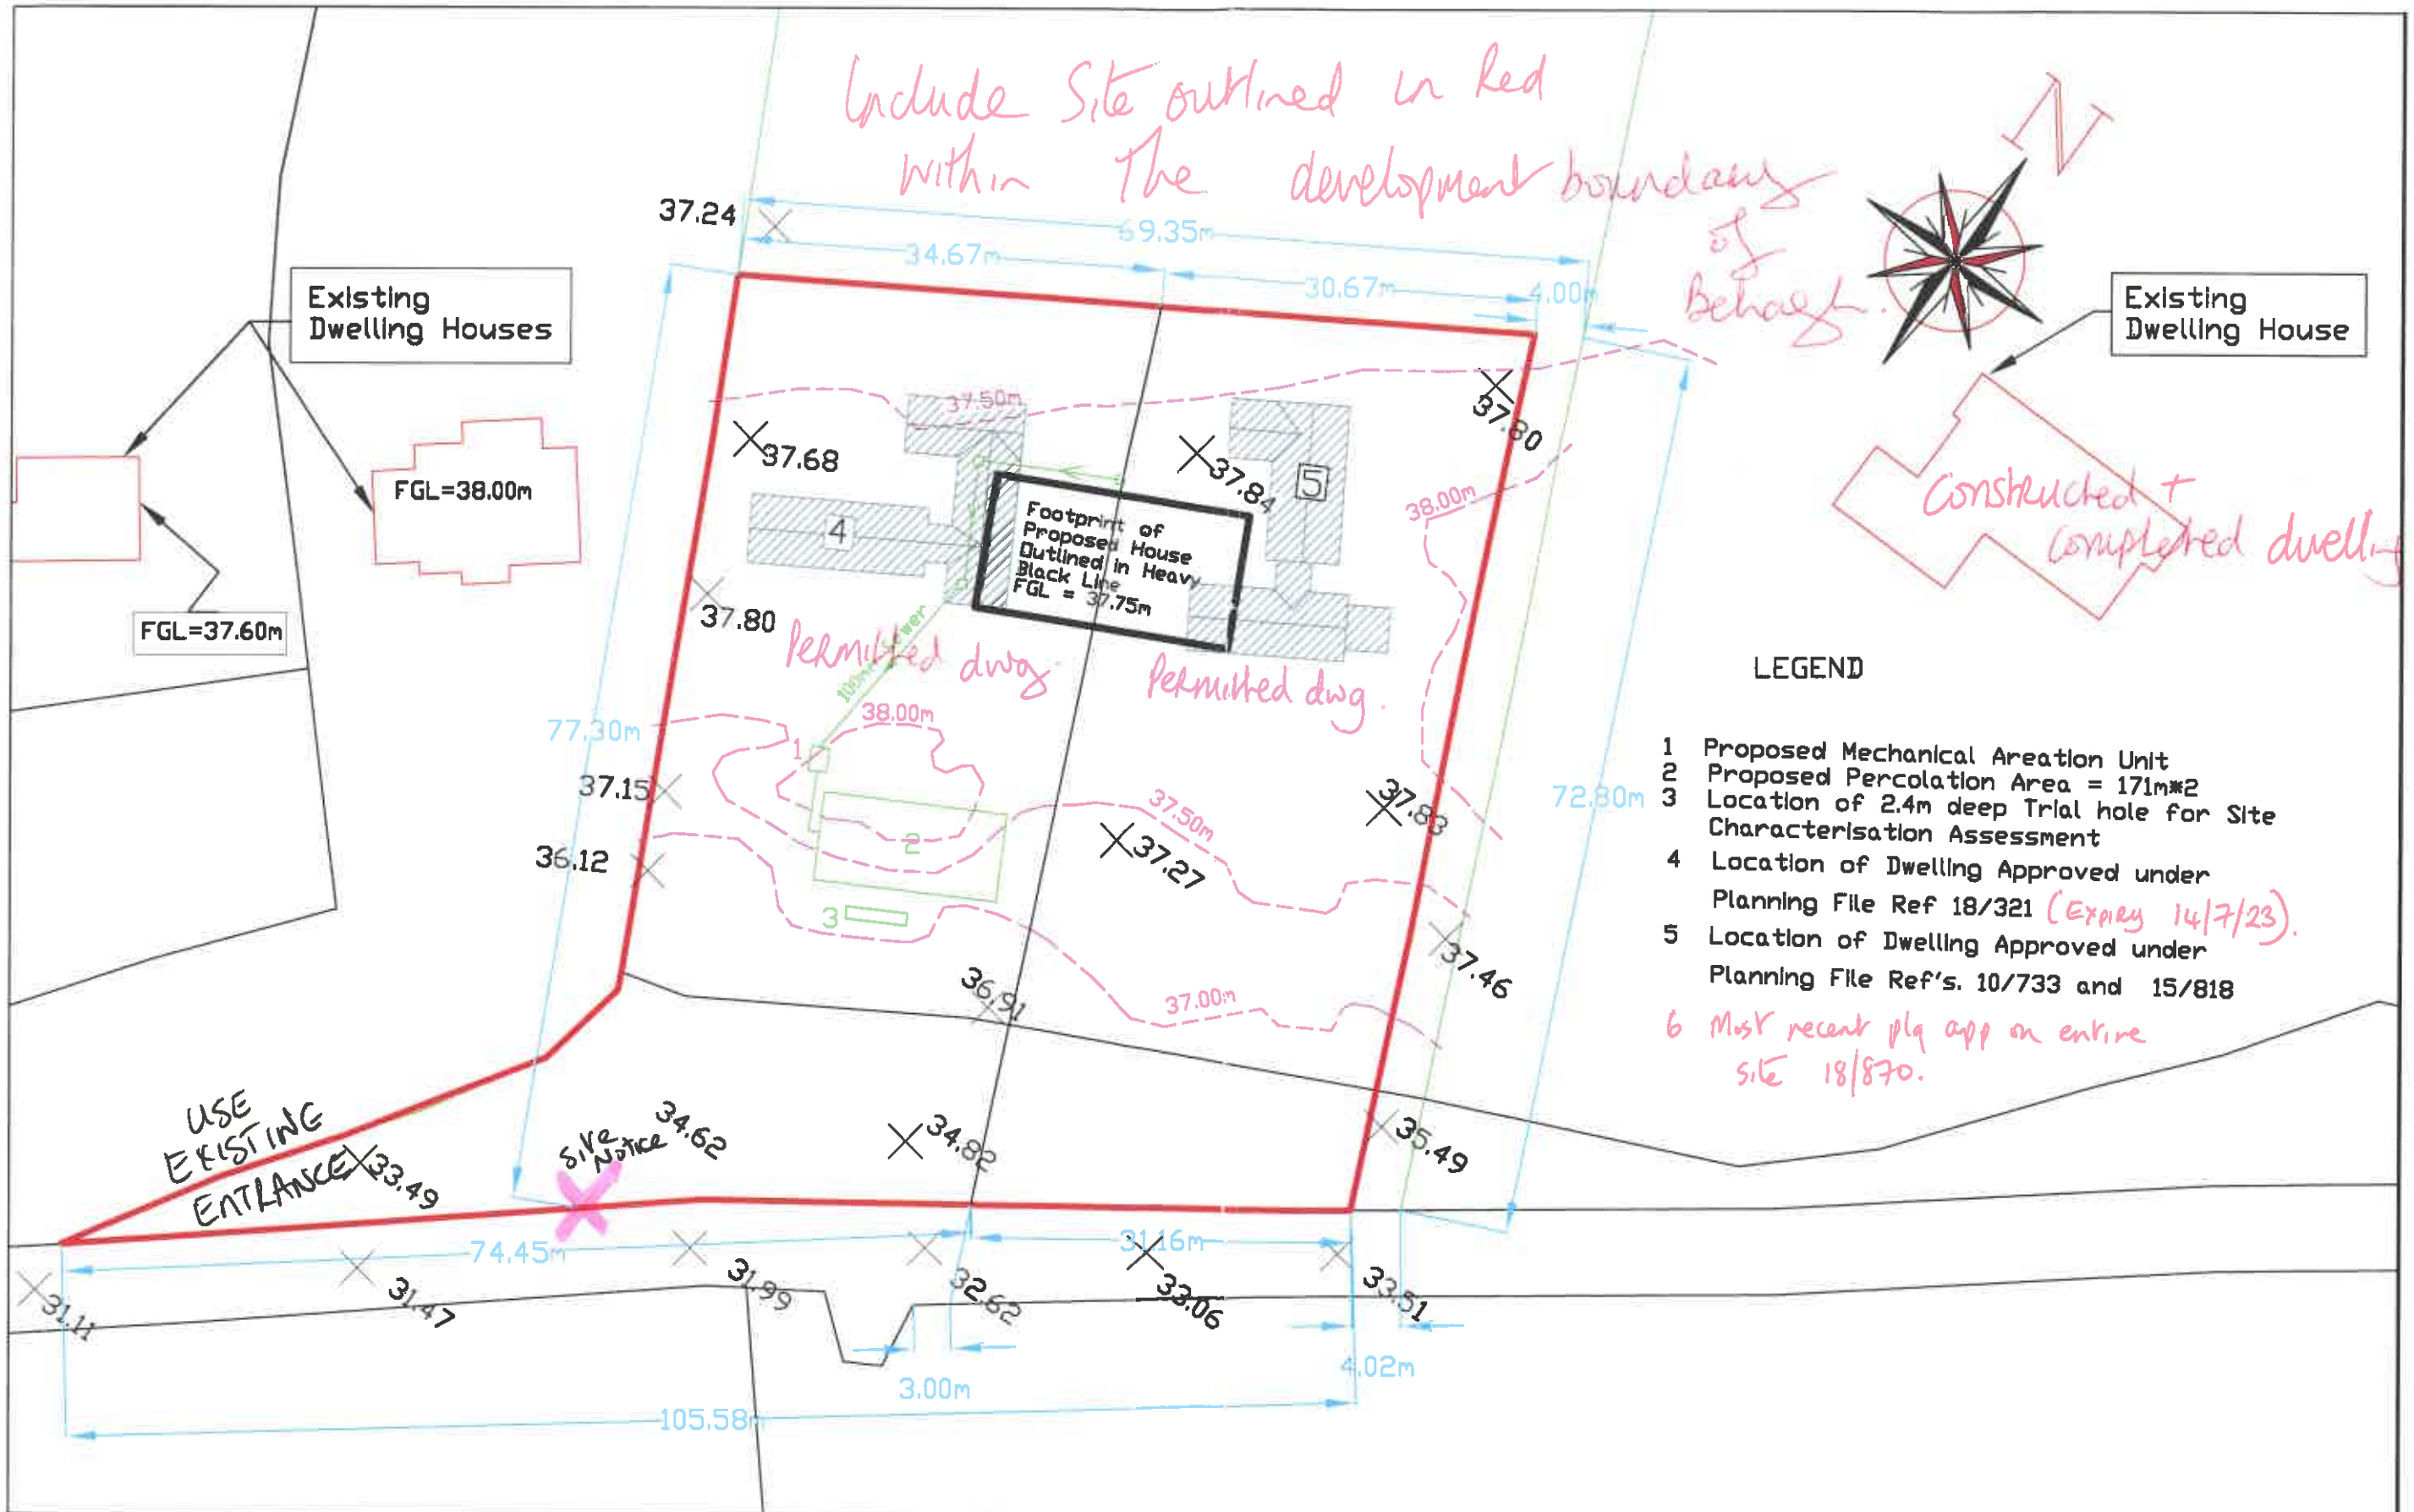 Include Site outlined in Red
within The development boundary
of
Behagh.
N
37.24
69.35m
34.67m
30.67m
4.00m
Existing
Dwelling Houses
Existing
Dwelling House
37.50m
37.80
37.68
37.84
5
38.00m
FGL=38.00m
4
Footprint of
Proposed House
Outlined in Heavy
Black Line
FGL = 37.75m
Constructed +
completed dwelling
37.80
FGL=37.60m
Permitted dwg.
Permitted dwg.
38.00m
77.30m
1
37.15
37.50m
37.83
72.80m
36.12
2
37.27
3
36.91
37.00m
37.46
LEGEND
1 Proposed Mechanical Areation Unit
2 Proposed Percolation Area = 171m*2
3 Location of 2.4m deep Trial hole for Site
Characterisation Assessment
4 Location of Dwelling Approved under
Planning File Ref 18/321 (Expiry 14/7/23).
5 Location of Dwelling Approved under
Planning File Ref's. 10/733 and 15/818
6 Most recent plg app on entire
site 18/870.
USE
EXISTING
ENTRANCE
33.49
SITE
NOTICE
34.62
34.82
35.49
74.45m
31.16m
31.11
31.47
31.99
32.62
33.06
33.51
4.02m
3.00m
105.58m